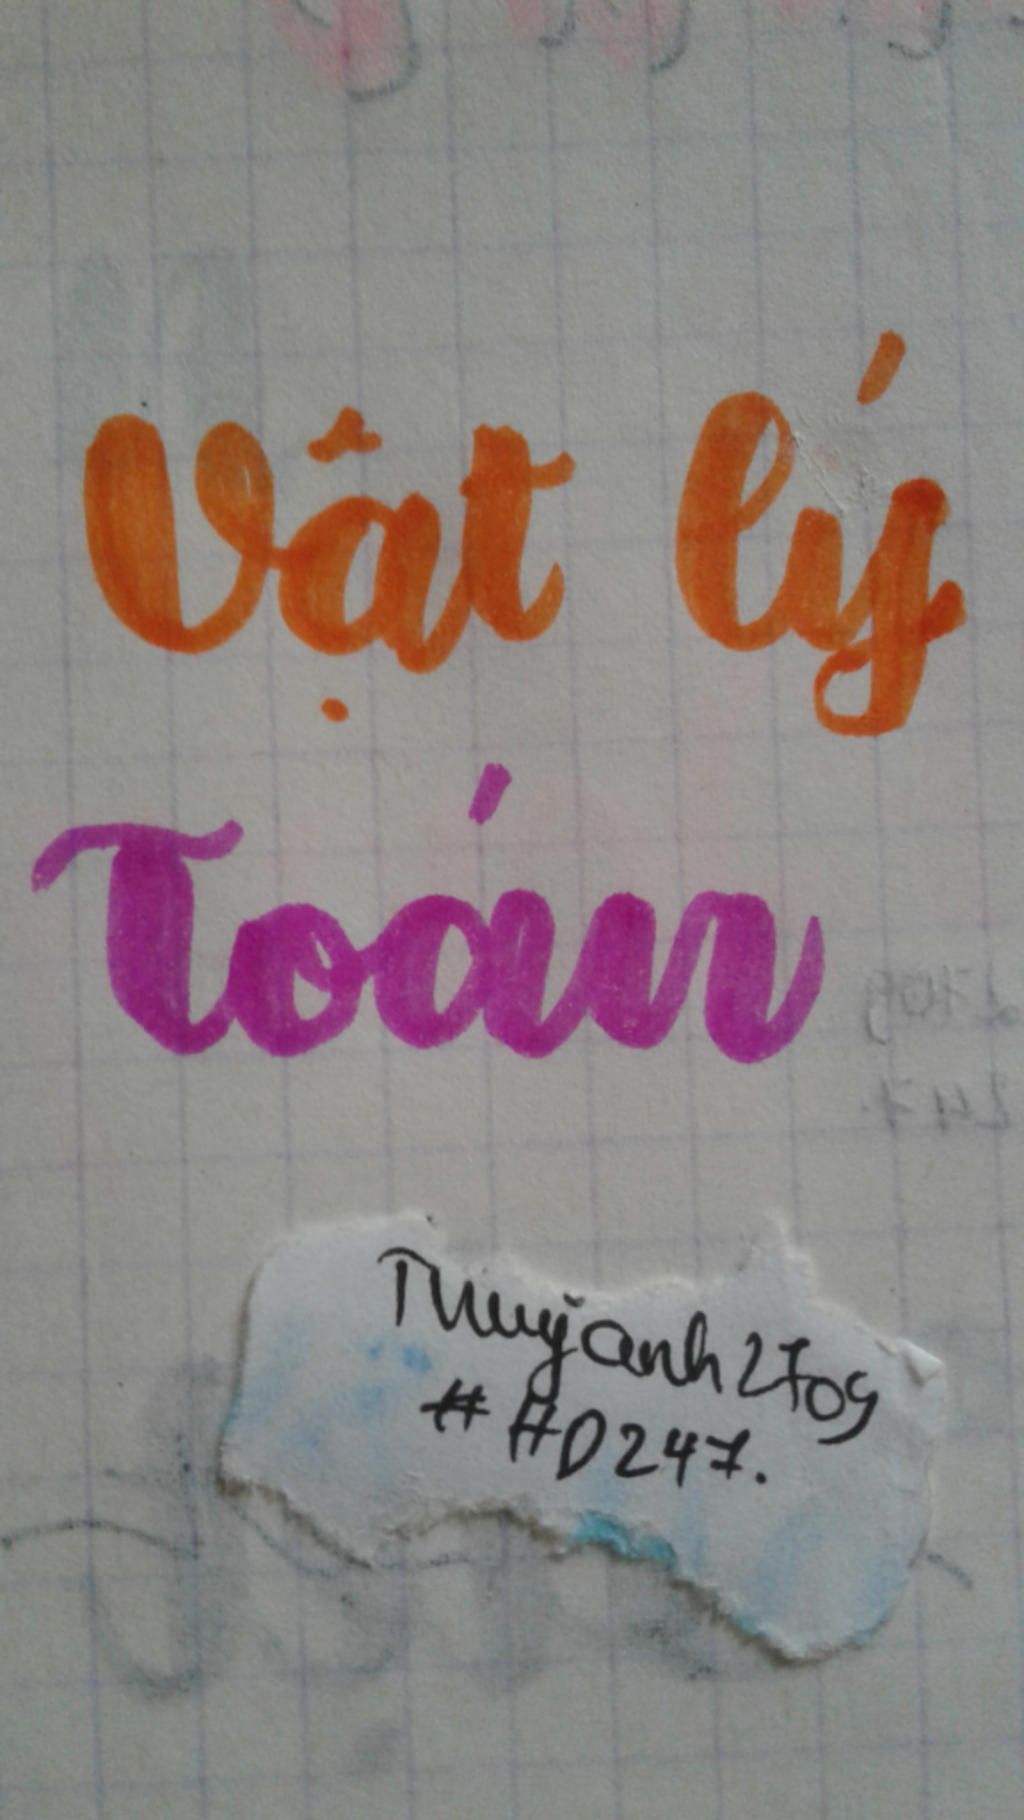 Vật lý
Toán
Thuỳanh2709
# HD247.